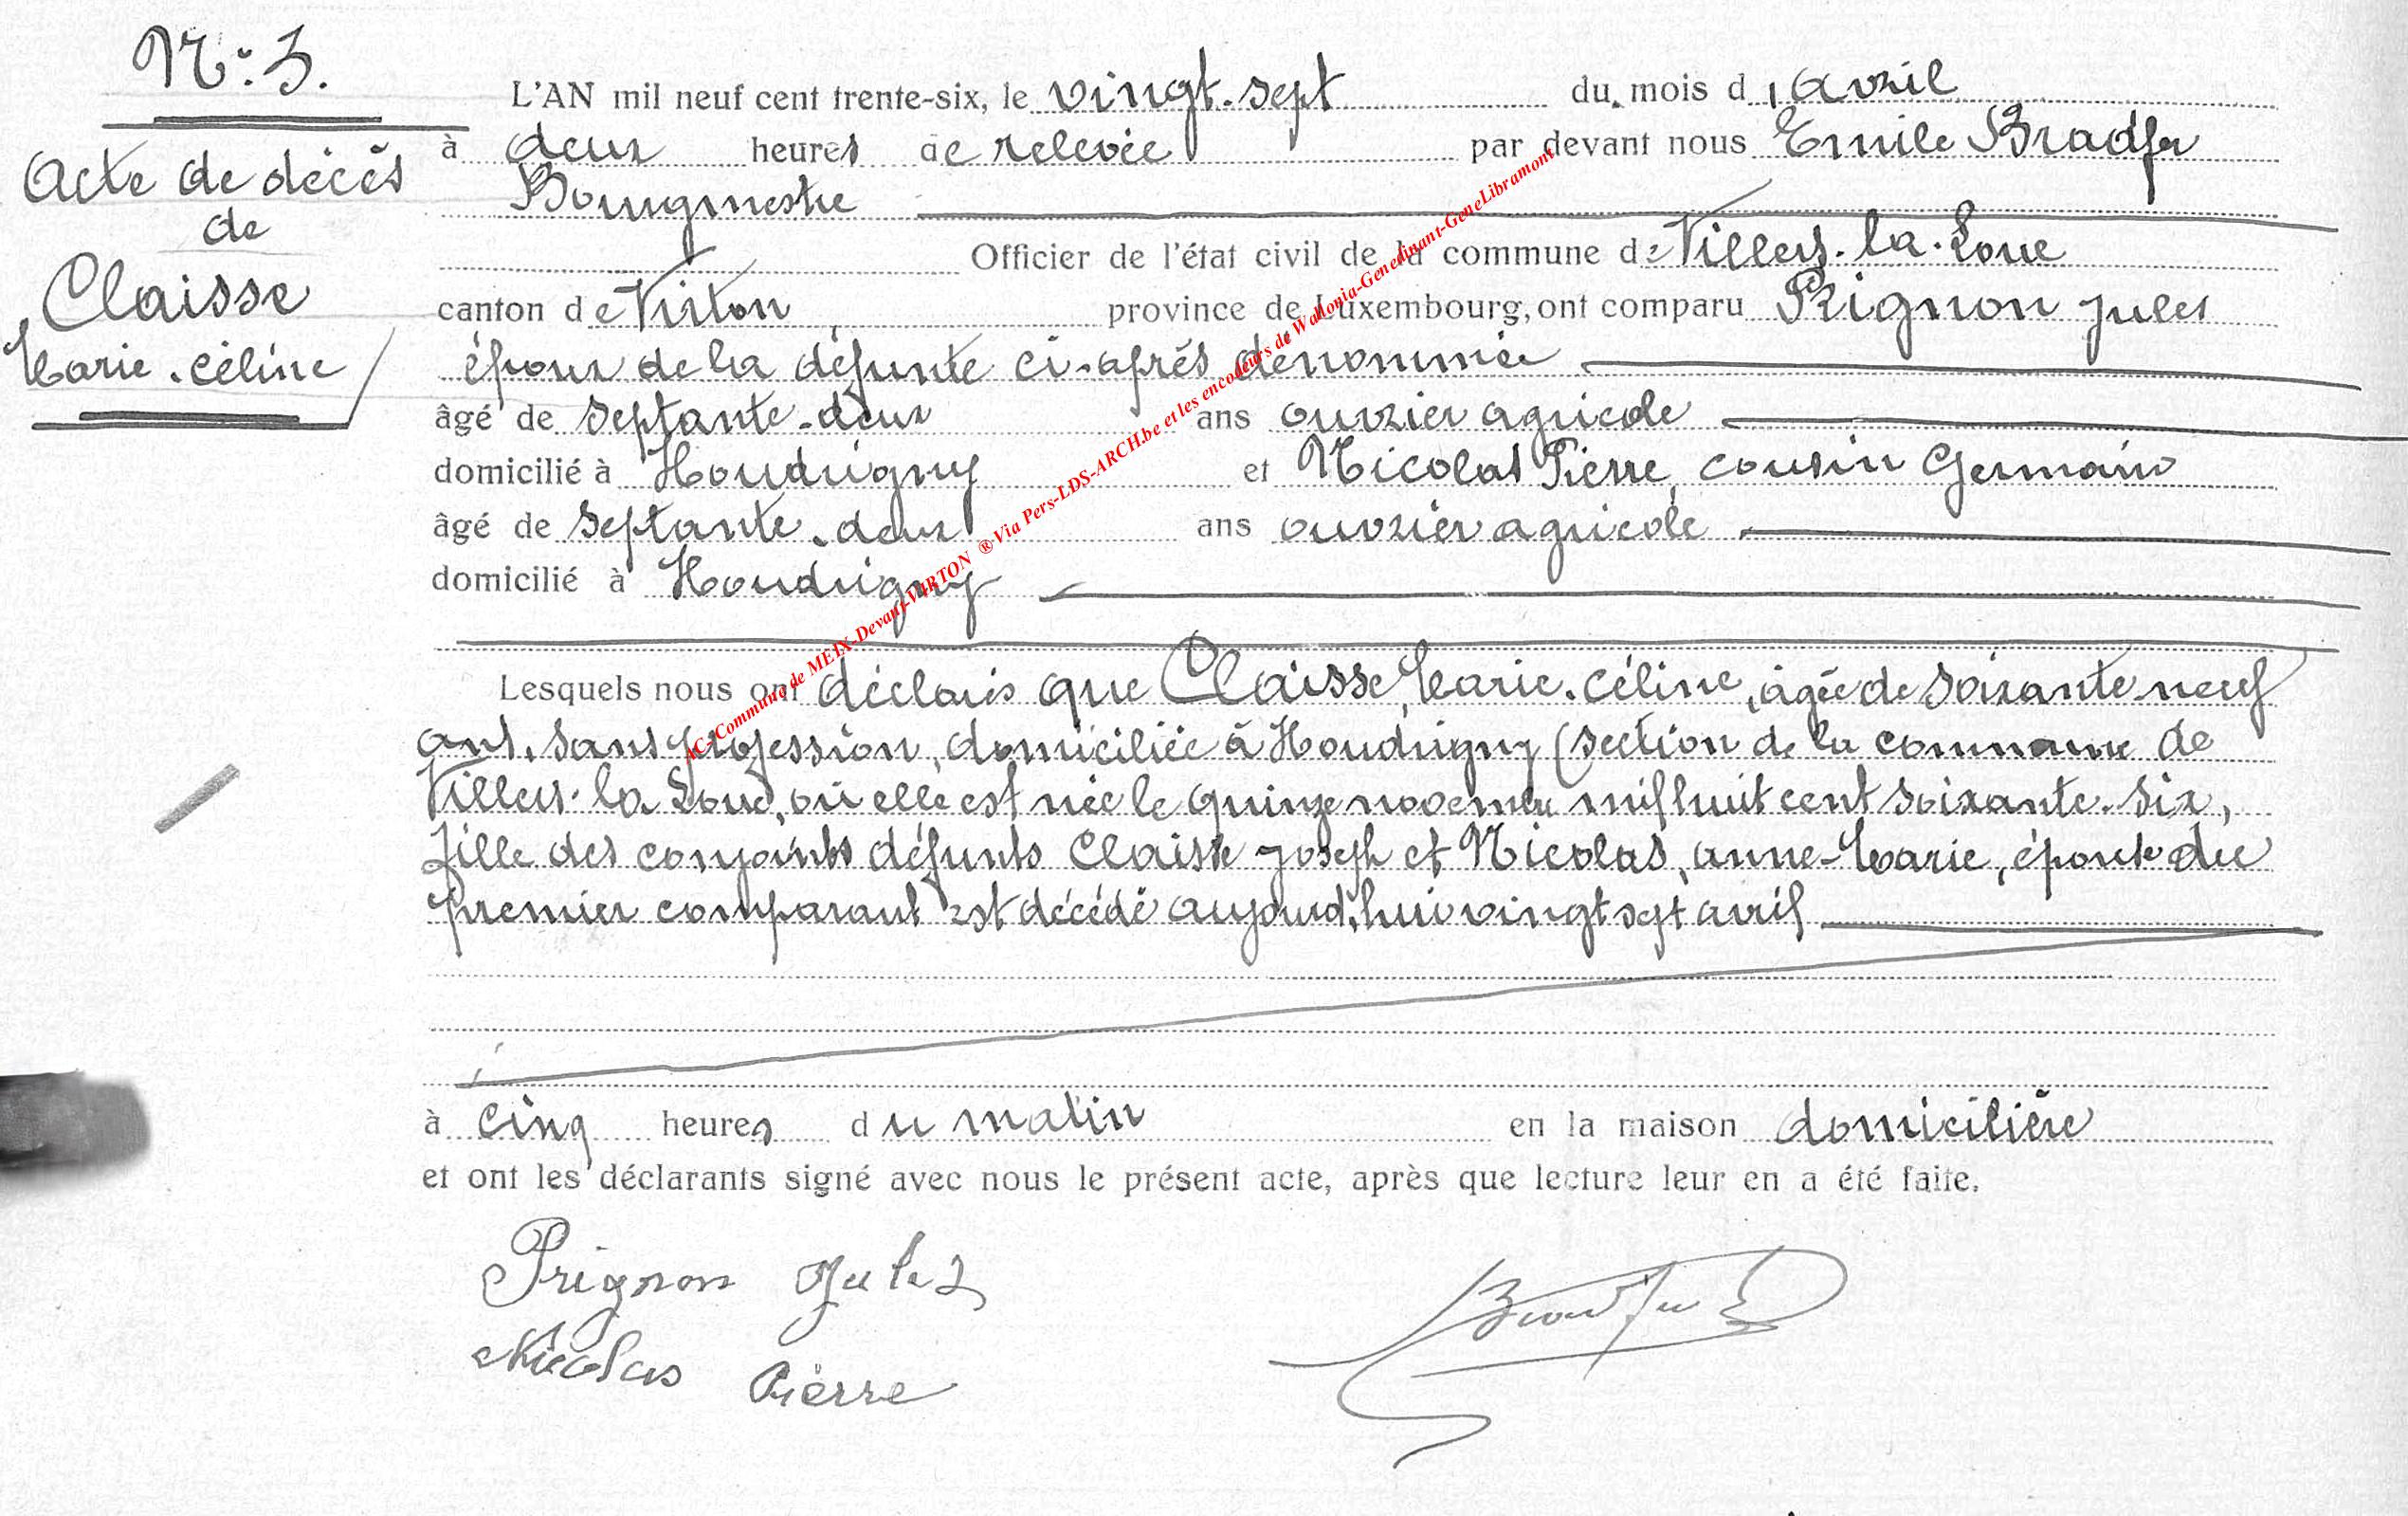 N° 3.
Acte de décès
de
Claisse
Marie-Céline
L'AN mil neuf cent trente-six, le vingt-sept du mois d'avril
à deux heures de relevée par devant nous Emile Bradfer
Bourgmestre
Officier de l'état civil de la commune de Villers-la-Loue
canton de Virton, province de Luxembourg, ont comparu Prignon Jules
époux de la défunte ci-après dénommée
âgé de septante-deux ans ouvrier agricole
domicilié à Houdrigny et Nicolas Pierre, cousin Germain
âgé de septante-deux ans ouvrier agricole
domicilié à Houdrigny
Lesquels nous ont déclaré que Claisse, Marie-Céline, âgée de soixante-neuf
ans, sans profession, domiciliée à Houdrigny (section de la commune de
Villers-la-Loue, où elle est née le quinze novembre mil huit cent soixante-six,
fille des conjoints défunts Claisse Joseph et Nicolas, Anne-Marie, épouse du
premier comparant est décédé aujourd'hui vingt sept avril
à cinq heures du matin en la maison domicilière
et ont les déclarants signé avec nous le présent acte, après que lecture leur en a été faite.
Prignon Jules
Nicolas Pierre
Bradfer
AC-Commune de MEIX-Devant-VIRTON ® Via Pers-LDS-ARCH.be et les encodeurs de Wallonia-Genedinant-GeneLibramont